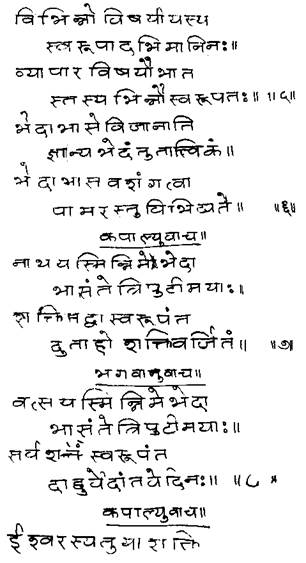 विभिन्नो विषयी यस्य
स्वरूपादभिमानिनः॥
व्यापार विषयौ भात
स्तस्य भिन्नौ स्वरूपतः॥ ॥५॥
भेदाभासे विजानाति
ज्ञान्यभेदं तु तात्विकं॥
भेदाभासवशं गत्वा
पामरस्तु विभिद्यते॥ ॥६॥
कपाल्युवाच॥
नाथ यस्मिन्निमे भेदा
भासंते त्रिपुटीमयाः॥
शक्तिमद्वा स्वरूपं त
दुताहो शक्तिवर्जितं॥ ॥७॥
भगवानुवाच॥
वत्स यस्मिन्निमे भेदा
भासंते त्रिपुटीमयाः॥
सर्वशक्तं स्वरूपं त
दाहुर्वेदांतवेदिनः॥ ॥८॥
कपाल्युवाच॥
ईश्वरस्य तु या शक्ति